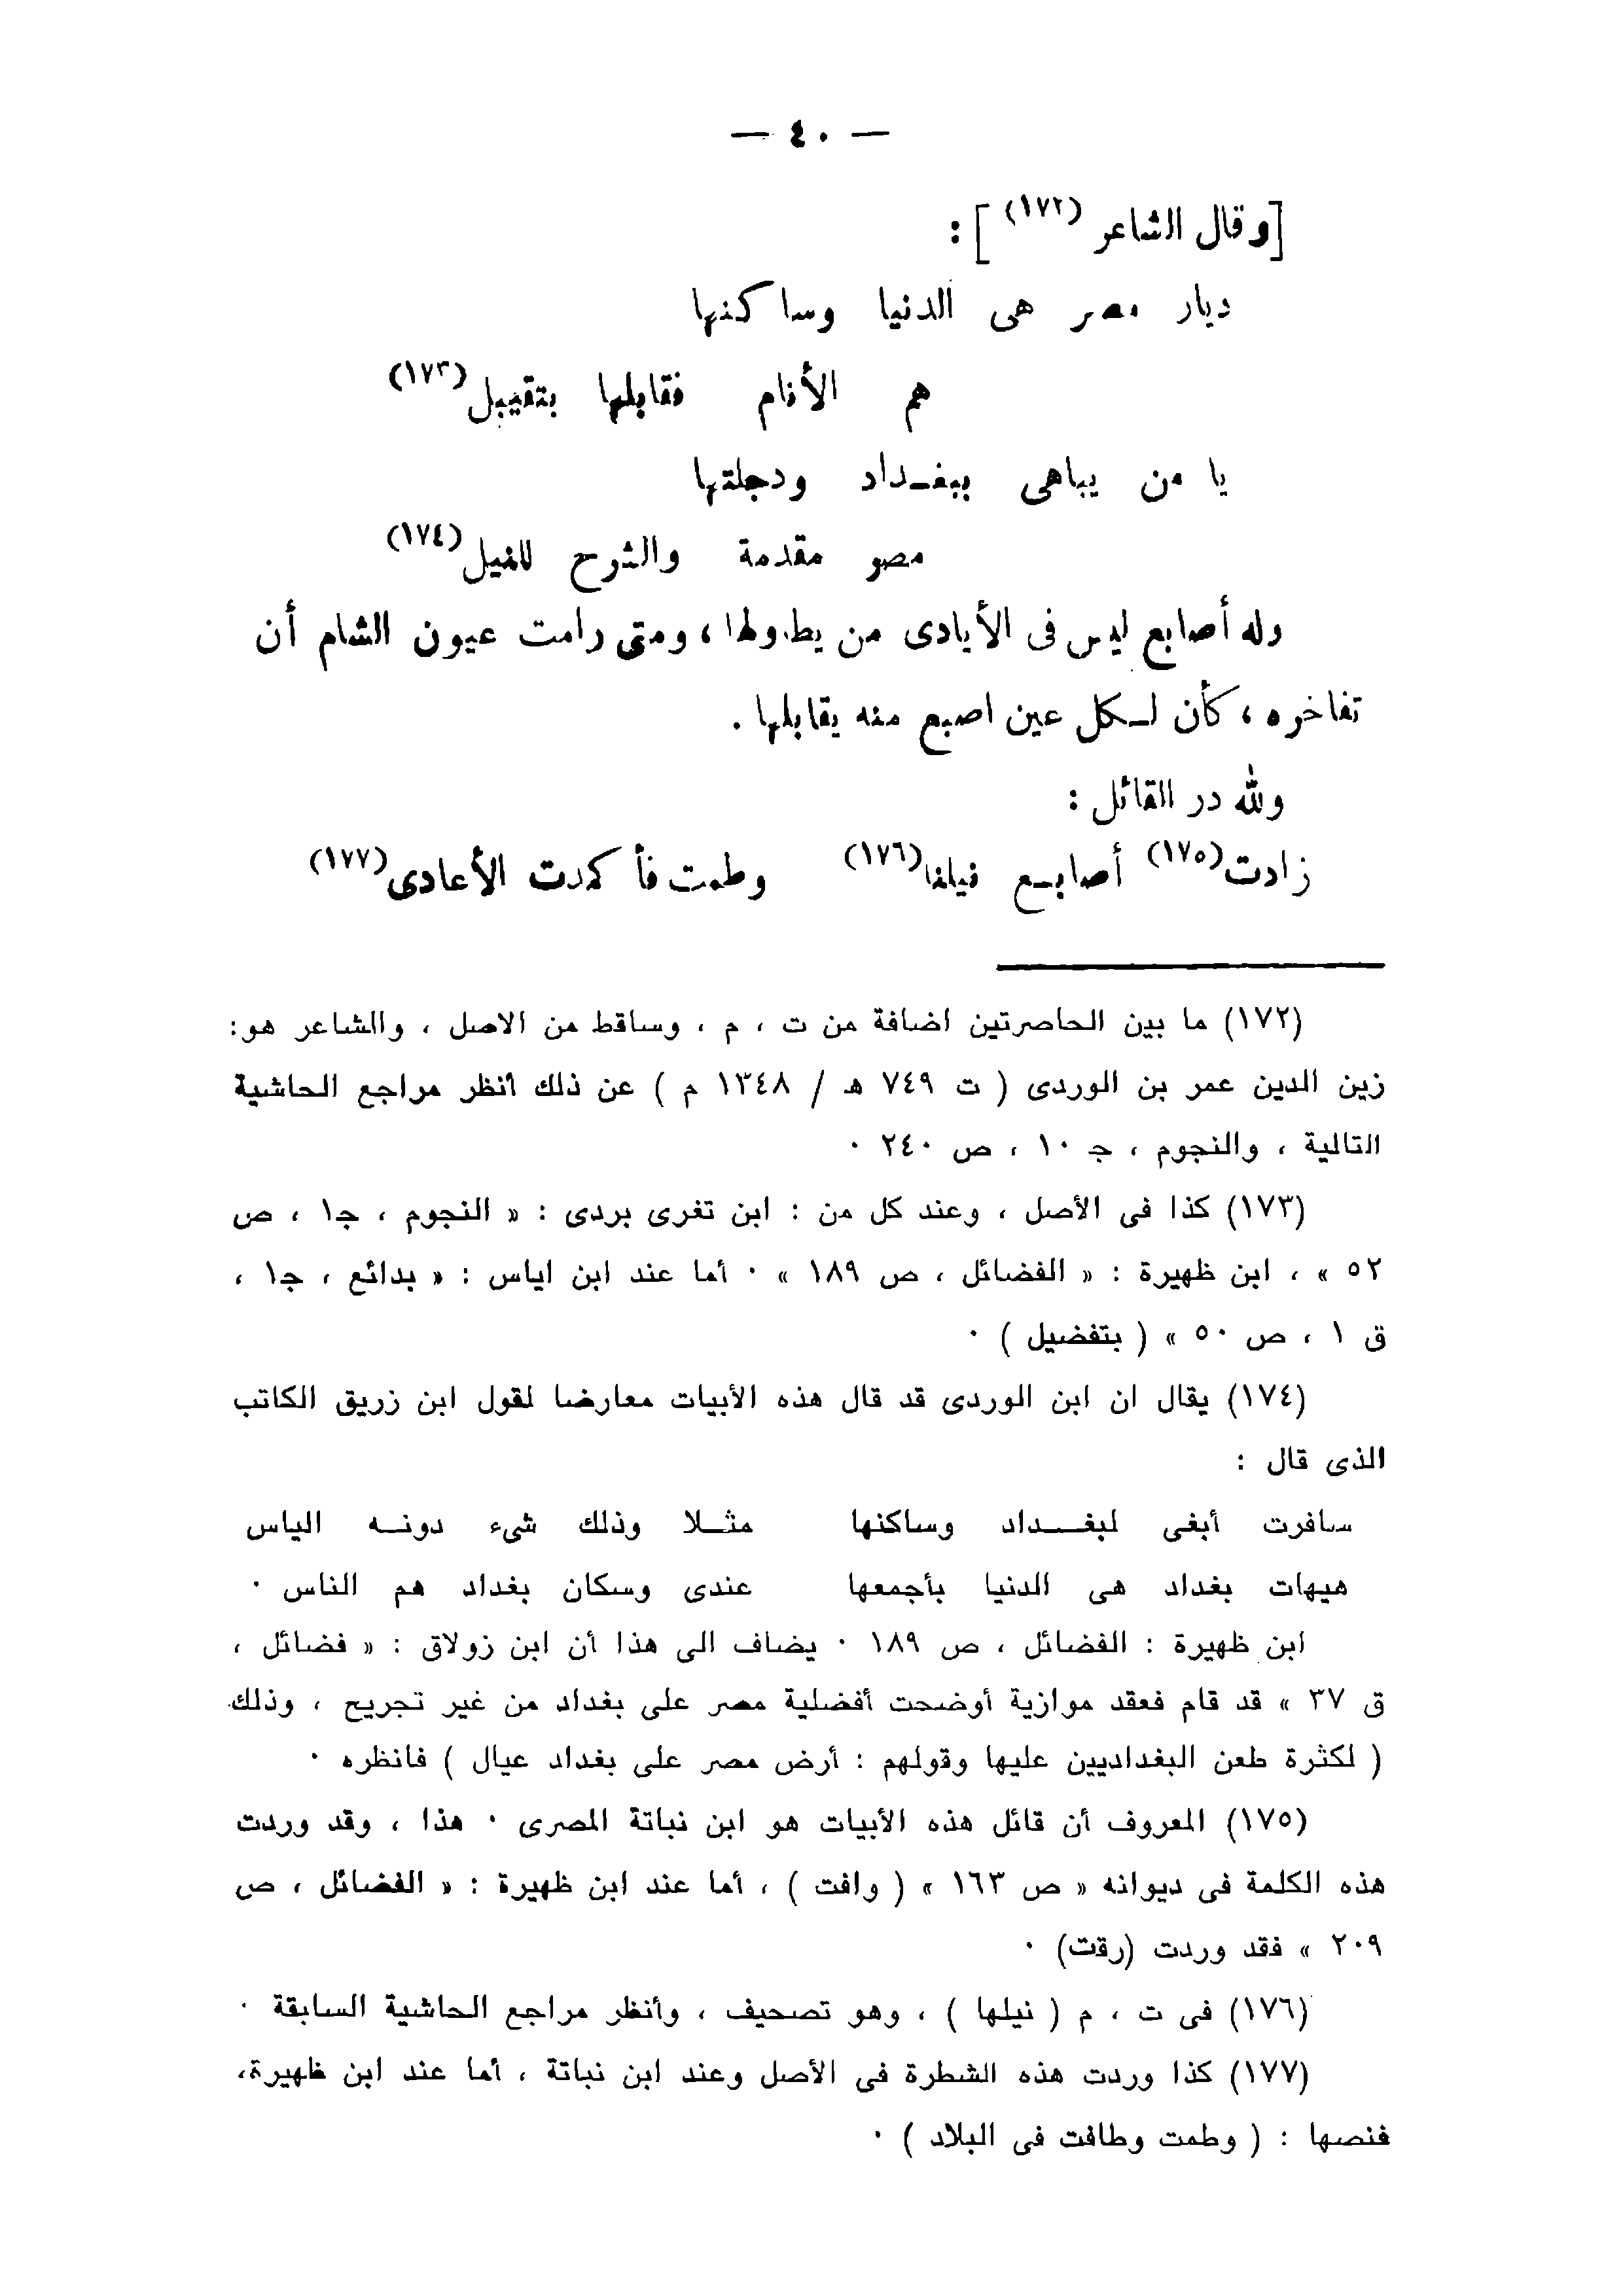 — ٤٠ —
[وقال الشاعر (١٧٢)] :
ديار مصر هى الدنيا وساكنها
هم الأنام فقابلها بتقبيل (١٧٣)
يا من يباهى ببغـداد ودجلتها
مصر مقدمة والشرح للنيل (١٧٤)
وله أصابع ليس فى الأيادى من يطاولها ، ومتى رامت عيون الشام أن
تفاخره ، كأن لـكل عين اصبع منه يقابلها .
ولله در القائل :
زادت (١٧٥) أصابـع نيلنا (١٧٦) وطمت فأكمدت الأعادى (١٧٧)
(١٧٢) ما بين الحاصرتين اضافة من ت ، م ، وساقط من الاصل ، والشاعر هو :
زين الدين عمر بن الوردى ( ت ٧٤٩ هـ / ١٣٤٨ م ) عن ذلك أنظر مراجع الحاشية
التالية ، والنجوم ، جـ ١٠ ، ص ٢٤٠ ٠
(١٧٣) كذا فى الأصل ، وعند كل من : ابن تغرى بردى : « النجوم ، جـ١ ، ص
٥٢ » ، ابن ظهيرة : « الفضائل ، ص ١٨٩ » ٠ أما عند ابن اياس : « بدائع ، جـ١ ،
ق ١ ، ص ٥٠ » ( بتفضيل ) ٠
(١٧٤) يقال ان ابن الوردى قد قال هذه الأبيات معارضا لقول ابن زريق الكاتب
الذى قال :
سافرت أبغى لبغــداد وساكنها مثـلا وذلك شىء دونـه الياس
هيهات بغداد هى الدنيا بأجمعها عندى وسكان بغداد هم الناس ٠
ابن ظهيرة : الفضائل ، ص ١٨٩ ٠ يضاف الى هذا أن ابن زولاق : « فضائل ،
ق ٣٧ » قد قام فعقد موازية أوضحت أفضلية مصر على بغداد من غير تجريح ، وذلك
( لكثرة طعن البغداديين عليها وقولهم : أرض مصر على بغداد عيال ) فانظره ٠
(١٧٥) المعروف أن قائل هذه الأبيات هو ابن نباتة المصرى ٠ هذا ، وقد وردت
هذه الكلمة فى ديوانه « ص ١٦٣ » ( وافت ) ، أما عند ابن ظهيرة : « الفضائل ، ص
٢٠٩ » فقد وردت (رقت) ٠
(١٧٦) فى ت ، م ( نيلها ) ، وهو تصحيف ، وأنظر مراجع الحاشية السابقة ٠
(١٧٧) كذا وردت هذه الشطرة فى الأصل وعند ابن نباتة ، أما عند ابن ظهيرة،
فنصها : ( وطمت وطافت فى البلاد ) ٠